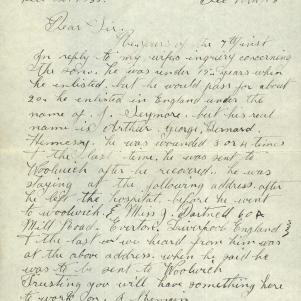 Dear Sir.
Re yours of the 7th inst
In reply to my wifes inquiry concerning
the sons. he was under 18 years when
he enlisted. but he would pass for about
20. he enlisted in England under the
name of J. Seymore. but his real
name is Arthur, George, Bernard,
Hennessy. he was wounded 3 or 4 times
the last time. he was sent to
Woolwich after he recovered. he was
staying at the following address. after
he left the hospital. before he went
to woolwich. Miss J. Dartnell 60A
Mill Road. Everton. Liverpool England
& the last we heard from him was
at the above address. when he said he
was to be sent to Woolwich
Trusting you will have something here
to work on.